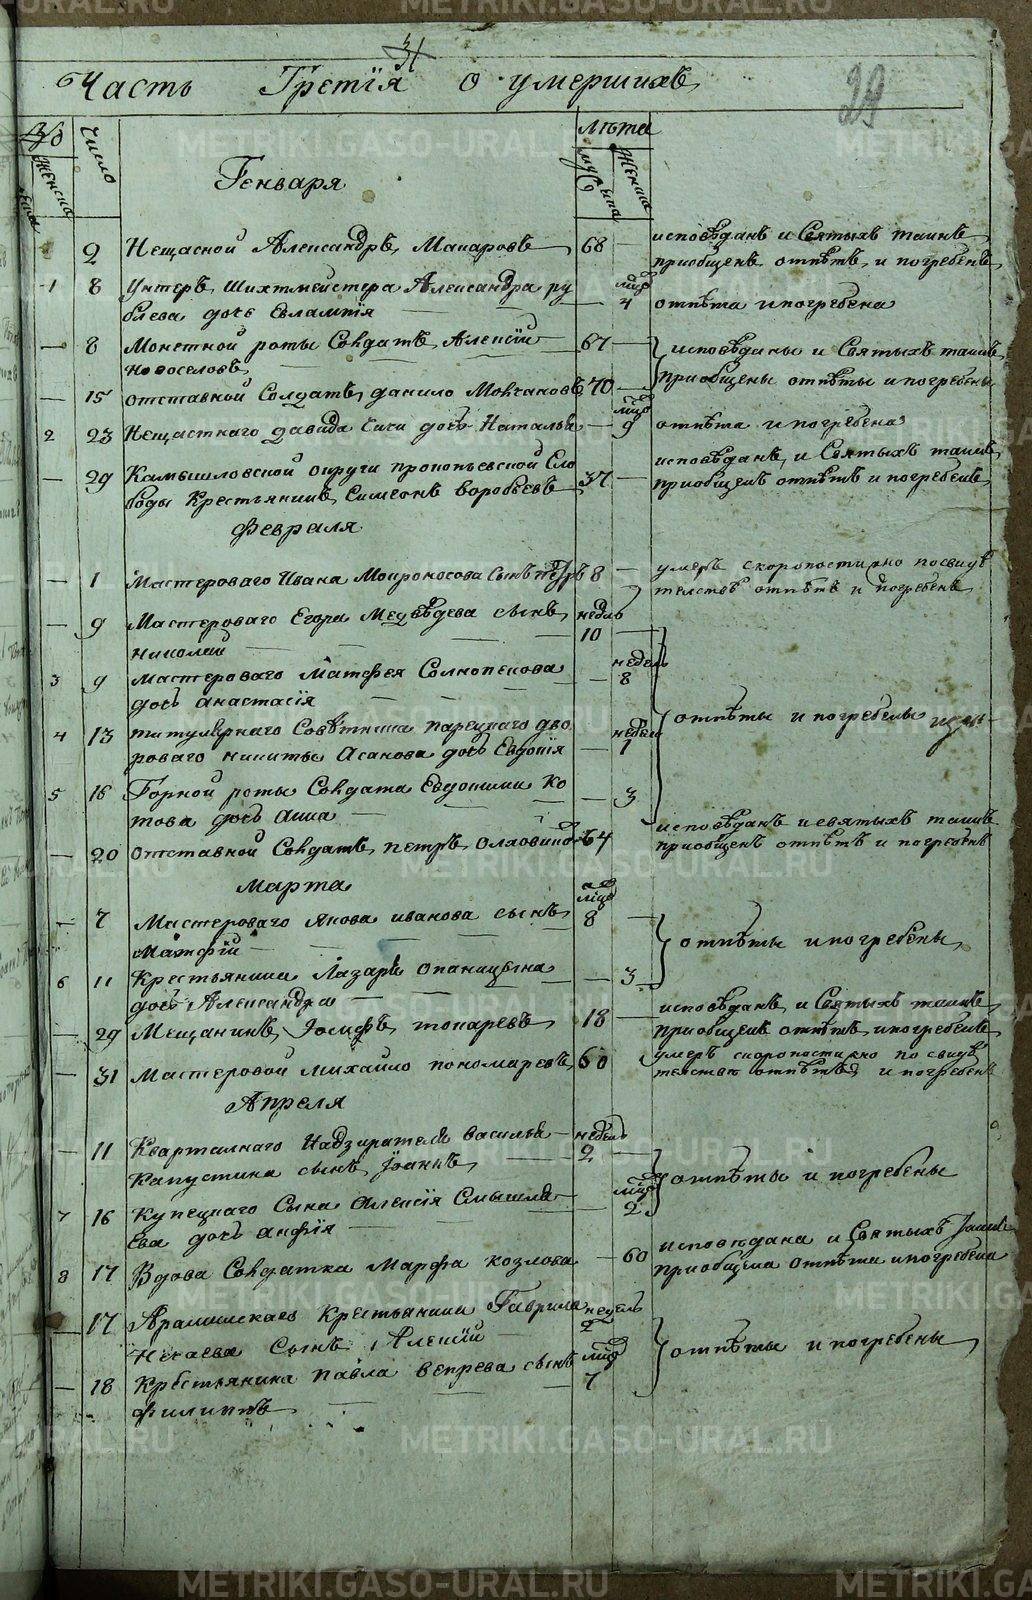 METRIKI.GASO-URAL.RU
31
Часть Третїя о умершихъ
29
Число
Лѣта
женска
Генваря
мужска
женска
2 Нещасной Александръ Макаровъ 68 — исповѣданъ и Святыхъ таинъ
приобщенъ отпѣтъ и погребенъ
1 8 Унтеръ Шихтмейстера Александра ру — 4 отпѣта и погребена
блева дочь Евлампїя
— 8 Монетной роты Солдатъ Алексїй 67 — исповѣданы и Святыхъ таинъ
Новоселовъ
— 15 отставной Солдатъ данило Молчановъ 70 — приобщены отпѣты и погребены
2 23 Нещастнаго давида дочь Наталья — 9 отпѣта и погребена
— 29 Камышловской округи прокопьевской Сло 37 — исповѣданъ и Святыхъ таинъ
боды Крестьянинъ Симеонъ воробьевъ приобщенъ отпѣтъ и погребенъ
Февраля
— 1 Мастероваго Ивана Мокроносова Сынъ петръ 8 — умеръ скоропостижно по свидѣ
тельствѣ отпѣтъ и погребенъ
— 9 Мастероваго Егора Медвѣдева сынъ недель
николай 10 —
3 9 мастероваго Матфея Солнопекова — недель 8
дочь анастасїя
отпѣты и погребены
4 13 титулярнаго Совѣтника дво — недель 1
роваго никиты Асанова дочь Евдокїя
5 16 Горной роты Солдата Евдокима Ко — 3
това дочь Анна
— 20 отставной Солдатъ петръ 64 исповѣданъ и святыхъ таинъ
приобщенъ отпѣтъ и погребенъ
Марта
— 7 Мастероваго Якова иванова сынъ 8 —
Матфїй
отпѣты и погребены
6 11 Крестьянина Лазаря опаницына — 3
дочь Александра
— 29 Мещанинъ Иосифъ токаревъ 18 — исповѣданъ и Святыхъ таинъ
приобщенъ отпѣтъ и погребенъ
— 31 Мастеровой михайло пономаревъ 60 умеръ скоропостижно по свидѣ
тельствѣ отпѣтъ и погребенъ
Апреля
— 11 Кварталнаго Надзирателя василья недель 2 —
Капустина сынъ Iоаннъ
отпѣты и погребены
7 16 Купецкаго Сына Алексїя Смышля — 2
ева дочь анфїя
8 17 Вдова Солдатка Марфа козлова — 60 исповѣдана и Святыхъ Таинъ
приобщена отпѣта и погребена
— 17 Крестьянина Гаврила недель 2
Нечаева Сынъ Алексїй
отпѣты и погребены
— 18 Крестьянина павла вепрева сынъ 7
филиппъ
METRIKI.GASO-URAL.RU